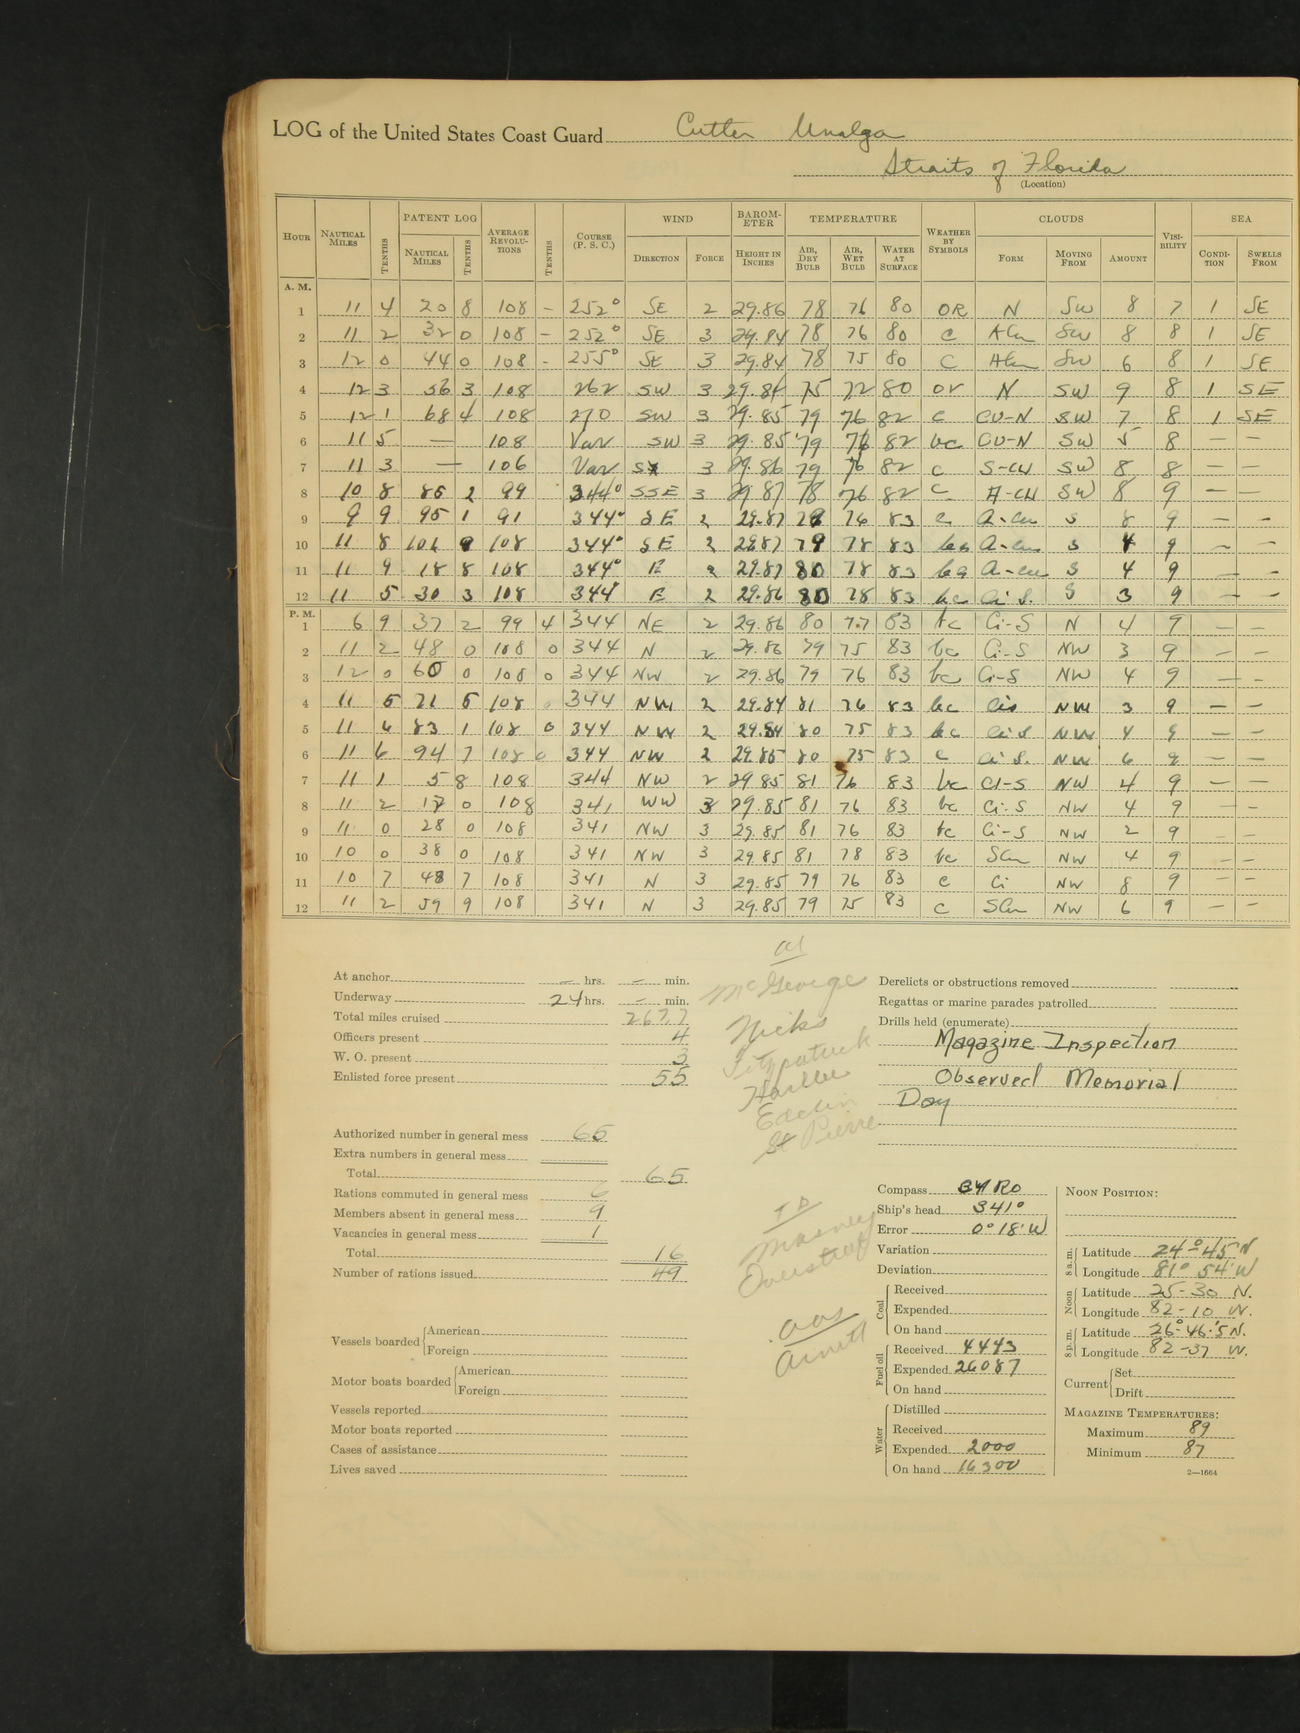 LOG of the United States Coast Guard Cutter Unalga
Straits of Florida
(Location)
HOUR NAUTICAL MILES TENTHS PATENT LOG NAUTICAL MILES TENTHS AVERAGE REVOLU-TIONS TENTHS COURSE (P. S. C.) WIND DIRECTION FORCE BAROM-ETER HEIGHT IN INCHES TEMPERATURE AIR, DRY BULB AIR, WET BULB WATER AT SURFACE WEATHER BY SYMBOLS CLOUDS FORM MOVING FROM AMOUNT VISI-BILITY SEA CONDI-TION SWELLS FROM
A. M.
1 11 4 20 8 108 - 252° SE 2 29.86 78 76 80 OR N SW 8 7 1 SE
2 11 2 32 0 108 - 252° SE 3 29.84 78 76 80 C ACu SW 8 8 1 SE
3 12 0 44 0 108 - 255° SE 3 29.84 78 75 80 C ACu SW 6 8 1 SE
4 12 3 56 3 108 262 SW 3 29.84 75 72 80 or N SW 9 8 1 SE
5 12 1 68 4 108 270 SW 3 29.85 79 76 82 c CU-N SW 7 8 1 SE
6 11 5 — 108 Var SW 3 29.85 79 76 82 bc CU-N SW 5 8 — —
7 11 3 — 106 Var 3 29.86 79 76 82 c S-CU SW 8 8 — —
8 10 8 85 2 99 344° SSE 3 29.87 78 76 82 c A-CU SW 8 9 — —
9 9 9 95 1 91 344° SE 2 29.87 76 83 c A-cu S 8 9 — —
10 11 8 106 9 108 344° SE 2 29.87 79 78 83 A-cu S 4 9 — —
11 11 9 18 8 108 344° E 2 29.87 80 78 83 A-cu S 4 9 — —
12 11 5 30 3 108 344° E 2 29.86 80 78 83 bc Ci S. S 3 9 — —
P. M.
1 6 9 37 2 99 4 344 NE 2 29.86 80 77 83 bc Ci-S N 4 9 — —
2 11 2 48 0 108 0 344 N 2 29.86 79 75 83 bc Ci-S NW 3 9 — —
3 12 0 60 0 108 0 344 NW 2 29.86 79 76 83 bc Ci-S NW 4 9 — —
4 11 5 71 5 108 0 344 NW 2 29.84 81 76 83 bc Cis NW 3 9 — —
5 11 6 83 1 108 0 344 NW 2 29.84 80 75 83 bc Ci S NW 4 9 — —
6 11 6 94 7 108 0 344 NW 2 29.85 80 75 83 c Ci S. NW 6 9 — —
7 11 1 5 8 108 344 NW 2 29.85 81 76 83 bc CI-S NW 4 9 — —
8 11 2 17 0 108 341 WW 3 29.85 81 76 83 bc Ci-S NW 4 9 — —
9 11 0 28 0 108 341 NW 3 29.85 81 76 83 bc Ci-S NW 2 9 — —
10 10 0 38 0 108 341 NW 3 29.85 81 78 83 bc SCu NW 4 9 — —
11 10 7 48 7 108 341 N 3 29.85 79 76 83 c Ci NW 8 9 — —
12 11 2 59 9 108 341 N 3 29.85 79 75 83 c SCu NW 6 9 — —
At anchor — hrs. — min.
Underway 24 hrs. — min.
Total miles cruised 267.7
Officers present 4
W. O. present 3
Enlisted force present 55
Authorized number in general mess 65
Extra numbers in general mess
Total 65
Rations commuted in general mess 6
Members absent in general mess 9
Vacancies in general mess 1
Total 16
Number of rations issued 49
Vessels boarded American
Foreign
Motor boats boarded American
Foreign
Vessels reported
Motor boats reported
Cases of assistance
Lives saved
al
McGeorge
Hicks
Fitzpatrick
Harllee
St Pierre
TD
aos
Arnett
Derelicts or obstructions removed
Regattas or marine parades patrolled
Drills held (enumerate)
Magazine Inspection
Observed Memorial
Day
Compass GYRO
Ship's head 341°
Error 0° 18' W
Variation
Deviation
Coal Received
Expended
On hand
Fuel oil Received 4443
Expended 26087
On hand
Water Distilled
Received
Expended 2000
On hand 16300
NOON POSITION:
8 a. m. Latitude 24° 45' N
Longitude 81° 54' W
Noon Latitude 25-30 N.
Longitude 82-10 W.
8 p. m. Latitude 26°-46.'5 N.
Longitude 82-37 W.
Current Set
Drift
MAGAZINE TEMPERATURES:
Maximum 89
Minimum 87
2—1664